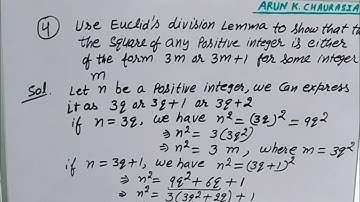 ARUN K. CHAURASIA
④ Use Euclid's division Lemma to show that
the square of any Positive integer is either
of the form 3m or 3m+1 for some integer
m
Sol. Let n be a Positive integer, we can express
it as 3q or 3q+1 or 3q+2
if n = 3q, we have n² = (3q)² = 9q²
⇒ n² = 3(3q²)
⇒ n² = 3 m, where m = 3q²
if n = 3q+1, we have n² = (3q+1)²
⇒ n² = 9q² + 6q + 1
⇒ n² = 3(3q²+2q) + 1